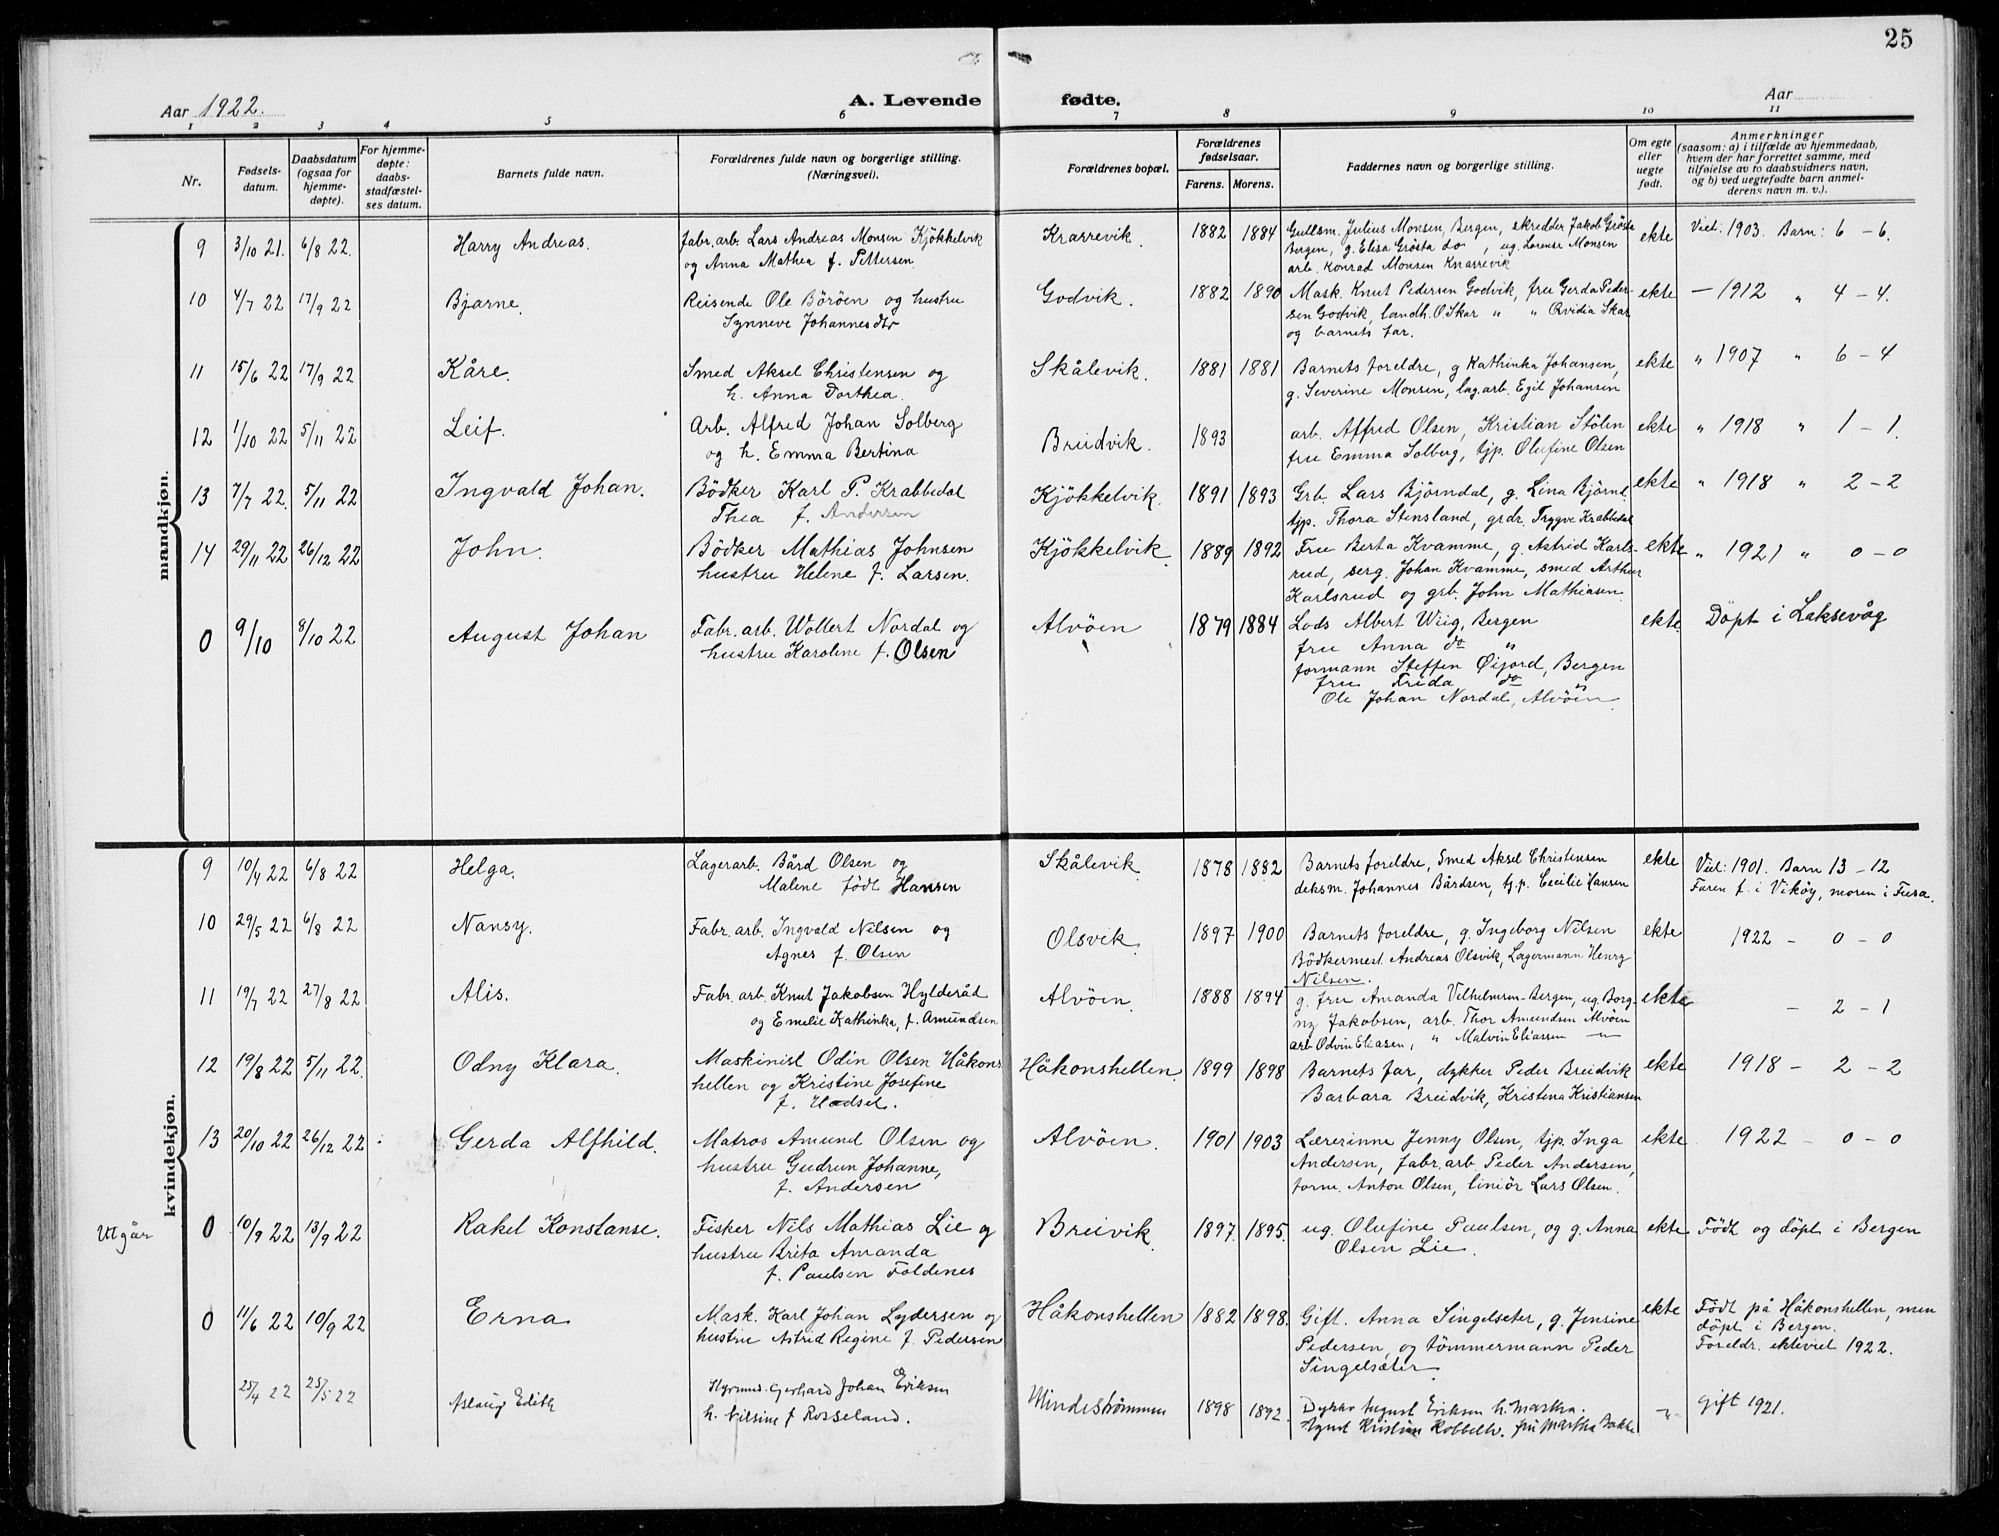 25
Aar 1922.
A. Levende fødte.
Aar
1 2 3 4 5 6 7 8 9 10 11
Nr.
Fødsels-
datum.
Daabsdatum
(ogsaa for
hjemme-
døpte).
For hjemme-
døpte:
daabs-
stadfæstel-
ses datum.
Barnets fulde navn.
Forældrenes fulde navn og borgerlige stilling.
(Næringsvei).
Forældrenes bopæl.
Forældrenes
fødselsaar.
Farens. Morens.
Faddernes navn og borgerlige stilling.
Om egte
eller
uegte
født.
Anmerkninger
(saasom: a) i tilfælde av hjemmedaab,
hvem der har forrettet samme, med
tilføielse av to daabsvidners navn,
og b) ved uegtefødte barn anmel-
derens navn m. v.).
mandkjøn.
9 3/10 21. 6/8 22. Harry Andreas. Fabr. arb. Lars Andreas Monsen Kjökkelvik Knarrevik. 1882 1884 Gullsm. Julius Monsen, Bergen, skredder Jakob Grösta ekte Viet: 1903. Barn: 6 - 6.
og Anna Mathea f. Pettersen. Bergen, g. Elisa Grösta do , ug. Lorense Monsen
arb. Konrad Monsen Knarrevik
10 4/7 22 17/9 22 Bjarne. Reisende Ole Böröen og hustru Godvik. 1882 1890 Mask. Knut Pedersen Godvik, frue Gerda Peder- ekte - 1912 " 4 - 4.
Synneve Johannesdtr sen Godvik, landh. O. Skar " " Ovidia Skar
og barnets far.
11 15/6 22 17/9 22 Kåre. Smed Aksel Christensen og Skålevik. 1881 1881 Barnets foreldre, g Kathinka Johansen, ekte " 1907 " 6 - 4
h. Anna Dorthea. g. Severine Monsen, lag. arb. Egil Johansen
12 1/10 22 5/11 22 Leif. Arb. Alfred Johan Solberg Breidvik. 1893 arb. Affred Olsen, Kristian Stölen ekte " 1918 " 1 - 1.
og h. Emma Bertina frue Emma Solberg, tjp. Olufine Olsen
13 7/7 22. 5/11 22 Ingvald Johan. Bödker Karl P. Krabbedal Kjökkelvik. 1891 1893 Grb. Lars Björndal, g. Lina Björnd. ekte " 1918 " 2 - 2
Thea f. Andersen tjp. Thora Stensland, grdr. Trygve Krabbedal
14 29/11 22 26/12 22 John. Bödker Mathias Johnsen Kjökkelvik. 1889 1892 Frue Berta Kvamme, g. Astrid Karls- ekte " 1921 " 0 - 0
hustru Helene f. Larsen. rud, serg. Johan Kvamme, smed Arthur
Karlsrud og grb. John Mathiasen.
0 9/10 8/10 22 August Johan Fabr. arb. Wollert Nordal og Alvöen 1879 1884 Lods Albert Wiig, Bergen ekte. Döpt i Laksevåg
hustru Karolene f. Olsen frue Anna do "
formann Steffen Øijord, Bergen
frue Frida do "
Ole Johan Nordal, Alvöen
kvindekjøn.
9 10/4 22 6/8 22 Helga. Lagerarb. Bård Olsen og Skålevik 1878 1882 Barnets foreldre, Smed Aksel Christensen ekte Viet: 1901. Barn 13 - 12
Malene födt Hansen deksm. Johannes Bårdsen, tj.p. Cecilie Hansen Faren f. i Vikøy, moren i Fusa.
10 29/5 22 6/8 22 Nansy. Fabr. arb. Ingvald Nilsen og Olsvik. 1897 1900 Barnets foreldre, g. Ingeborg Nilsen ekte 1922 - 0 - 0
Agnes f. Olsen Bödkermest. Andreas Olsvik, Lagermann Henry
Nilsen.
11 19/7 22 27/8 22 Alis. Fabr. arb. Knut Jakobsen Hylderåd Alvöen. 1888 1894 g. frue Amanda Vilhelmsen-Bergen, ug. Borg- ekte - 2 - 1
og Emelie Kathinka, f. Amundsen ny Jakobsen, arb. Thor Amundsen Alvöen
arb Odvin Eliasen, " Malvin Eliassen -"-
12 19/8 22 5/11 22. Odny Klara. Maskinist Odin Olsen Håkons- Håkonshellen. 1899 1898 Barnets far, dykker Peder Breidvik ekte 1918 - 2 - 2
hellen og Kristine Josefine Barbara Breidvik, Kristena Kristiansen
f. Hadsel.
13 20/10 22 26/12 22 Gerda Alfhild. Matros Amund Olsen og Alvöen. 1901 1903 Lærerinne Jenny Olsen, tjp. Inga ekte 1922 - 0 - 0
hustru Gudrun Johanne, Andersen, fabr. arb. Peder Andersen,
f. Andersen form. Anton Olsen, liniör Lars Olsen.
Utgår 0 10/9 22 13/9 22 Rakel Konstanse. Fisker Nils Mathias Lie og Breivik. 1897. 1895. ug. Olufine Paulsen, og g. Anna ekte Födt og döpt i Bergen
hustru Brita Amanda Olsen Lie.
f. Paulsen Foldenes
0 11/6 22 10/9 22 Erna Mask. Karl Johan Lydersen og Håkonshellen 1882 1898. Gift. Anna Singelseter, g. Jensine ekte Födt på Håkonshellen, men
hustru Astrid Regine f. Pedersen Pedersen, og tömmermann Peder döpt i Bergen.
Singelseter. Foreldr. ekteviet 1922.
25/4 22 25/5 22 Aslaug Edith Styrmd. Gerhard Johan Eriksen Mindeströmmen 1898 1892. Dykker August Eriksen h. Martha. -"- Gift 1921.
h. Nilsine f Rosseland. Agent Kristian Kobbeltv. fru Martha Bakke